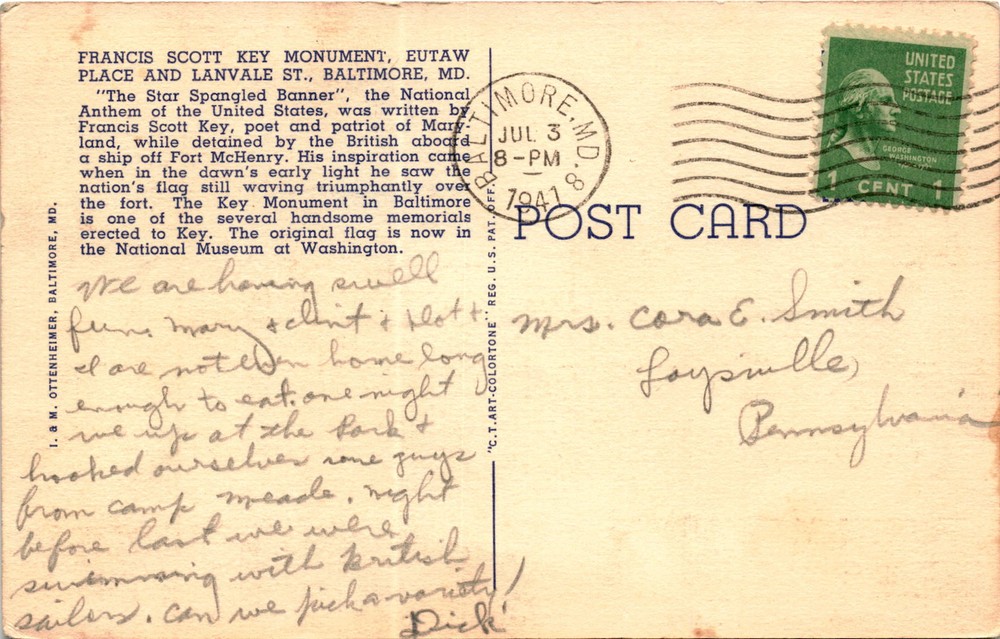 FRANCIS SCOTT KEY MONUMENT, EUTAW
PLACE AND LANVALE ST., BALTIMORE, MD.
"The Star Spangled Banner", the National
Anthem of the United States, was written by
Francis Scott Key, poet and patriot of Mary-
land, while detained by the British aboard
a ship off Fort McHenry. His inspiration came
when in the dawn's early light he saw the
nation's flag still waving triumphantly over
the fort. The Key Monument in Baltimore
is one of the several handsome memorials
erected to Key. The original flag is now in
the National Museum at Washington.
I. & M. OTTENHEIMER, BALTIMORE, MD.
We are having swell
fun. Mary & Clint & Dot &
I are not even home long
enough to eat. one night
we up at the Park &
hooked ourselves some guys
from camp meade. night
before last we were
swimming with British
sailors. Can we pick a variety!
Dick
"C.T. ART-COLORTONE" REG. U.S. PAT. OFF.
BALTIMORE, MD. 8
JUL 3
8-PM
1941
POST CARD
UNITED
STATES
POSTAGE
GEORGE
WASHINGTON
1 CENT 1
Mrs. Cora E. Smith
Loysville,
Pennsylvania